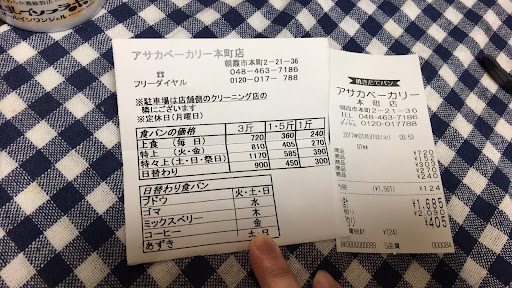 アサカベーカリー本町店
朝霞市本町2-21-36
☎ 048-463-7186
フリーダイヤル 0120-017-788
※駐車場は店舗側のクリーニング店の
隣にございます
※定休日(月曜日)
食パンの価格 3斤 1・5斤 1斤
上食 (毎 日) 720 360 240
特上 (火・金) 810 405 270
特々上(土・日・祭日) 1170 585 390
日替わり 900 450 300
日替わり食パン
ブドウ 火・土・日
ゴマ 水
ミックスベリー 木
コーヒー 金
あずき 土・日
焼きたてパン
アサカベーカリー
本町店
朝霞市本町2-21-36
TEL 048-463-7186
0120-017788
2017年01月31日(火) 08:53
¥1,685
¥2,090
¥405
000084